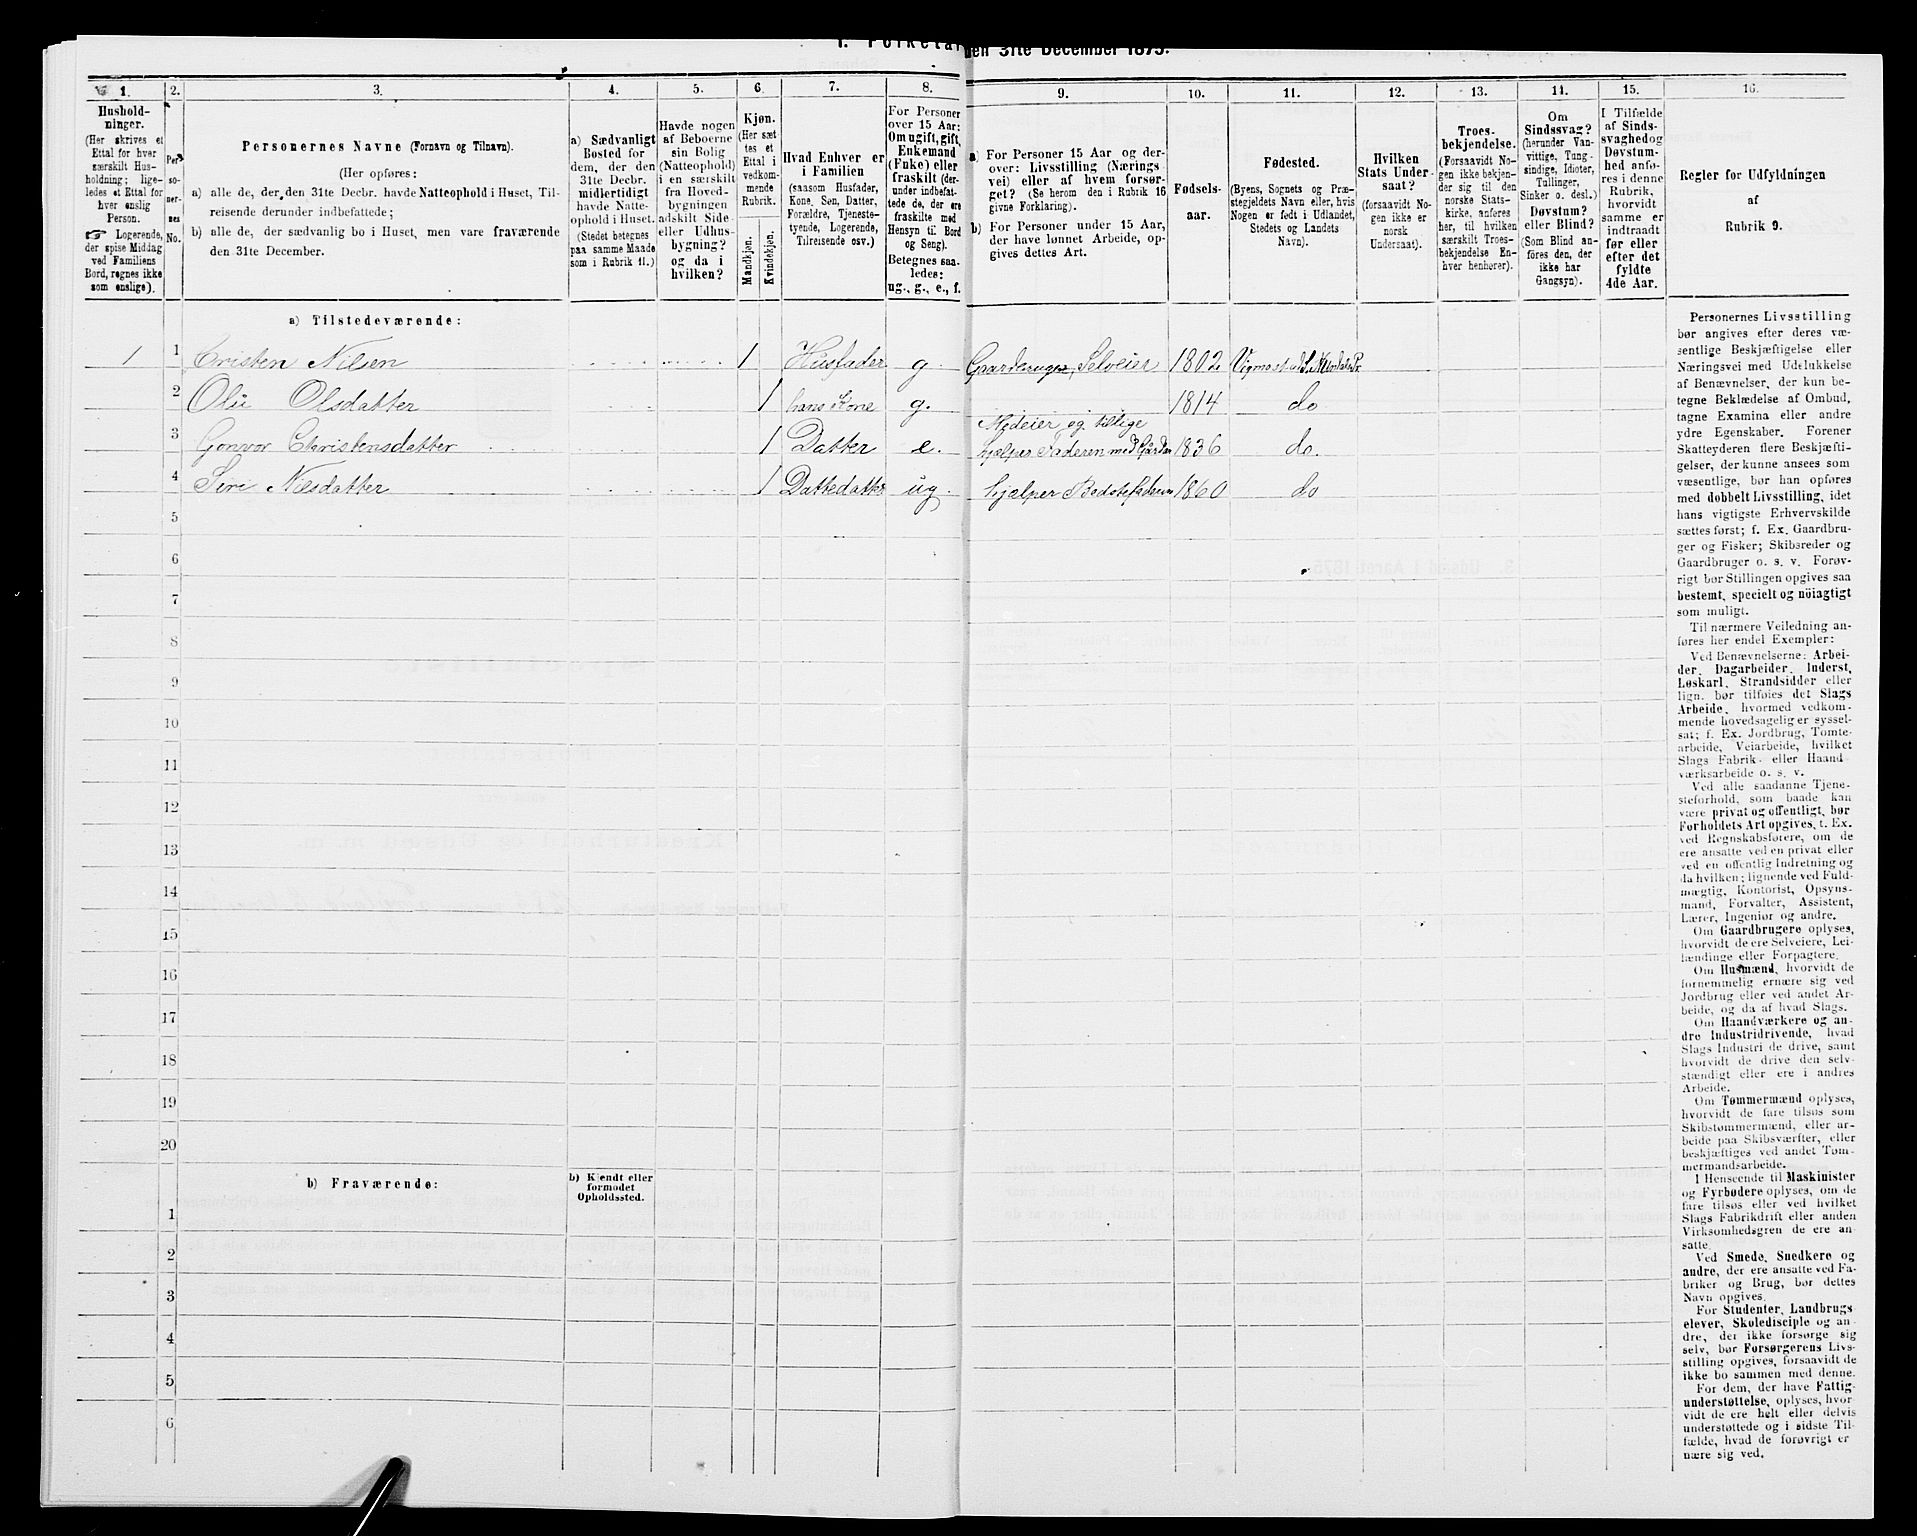 I. Folketæl
den 31te December 1875.
1.
Hushold-
ninger.
(Her skrives et
Ettal for hver
særskilt Hus-
holdning; lige-
ledes et Ettal for
hver enslig
Person.
Logerende,
der spise Middag
ved Familiens
Bord, regnes ikke
som enslige).
2.
Per
so-
ner-
nes
No.
3.
Personernes Navne (Fornavn og Tilnavn).
(Her opføres:
a) alle de, der den 31te Decbr. havde Natteophold i Huset, Til-
reisende derunder indbefattede;
b) alle de, der sædvanlig bo i Huset, men vare fraværende
den 31te December.
4.
a) Sædvanligt
Bosted for
dem, der den
31te Decbr.
midlertidigt
havde Natte-
ophold i Huset.
(Stedet betegnes
paa samme Maade
som i Rubrik 11.)
5.
Havde nogen
af Beboerne
sin Bolig
(Natteophold)
i en særskilt
fra Hoved-
bygningen
adskilt Side-
eller Udhus-
bygning?
og da i
hvilken?
6.
Kjøn.
(Her sæt
tes et
Ettal i
vedkom-
mende
Rubrik.
Mandkjøn.
Kvindekjøn.
7.
Hvad Enhver er
i Familien
(saasom Husfader,
Kone, Søn, Datter,
Forældre, Tjeneste-
tyende, Logerende,
Tilreisende osv.)
8.
For Personer
over 15 Aar:
Om ugift, gift,
Enkemand
(Enke) eller
fraskilt (der-
under indbefat-
tede de, der ere
fraskilte med
Hensyn til Bord
og Seng).
Betegnes saa-
ledes:
ug., g., e., f.
9.
a) For Personer 15 Aar og der-
over: Livsstilling (Nærings
vei) eller af hvem forsør-
get? (Se herom den i Rubrik 16
givne Forklaring).
b) For Personer under 15 Aar,
der have lønnet Arbeide, op-
gives dettes Art.
10.
Fødsels-
aar.
11.
Fødested.
(Byens, Sognets og Præ-
stegjeldets Navn eller, hvis
Nogen er født i Udlandet,
Stedets og Landets
Navn).
12.
Hvilken
Stats Under-
saat?
(forsaavidt No-
gen ikke er
norsk
Undersaat).
13.
Troes-
bekjendelse.
(Forsaavidt No-
gen ikke bekjen-
der sig til den
norske Stats-
kirke, anføres
her, til hvilken
særskilt Troes-
bekjendelse En-
hver henhører).
14.
Om
Sindssvag?
(herunder Van-
vittige, Tung-
sindige, Idioter,
Tullinger,
Sinker o. desl.)
Døvstum?
eller Blind?
(Som Blind an-
føres den, der
ikke har
Gangsyn).
15.
I Tilfælde
af Sinds-
svaghed og
Døvstum-
hed anfø-
res i denne
Rubrik,
hvorvidt
samme er
indtraadt
før eller
efter det
fyldte
4de Aar.
16.
Regler for Udfyldningen
af
Rubrik 9.
a) Tilstedeværende:
1 1 Cristen Nilsen 1 Husfader g. Gaardbruger, Selveier 1802
2 Olu Olsdatter 1 hans Kone g. 1814 do
3 Gonvor Christensdatter 1 Datter e. Medeier og tillige
hjælper Faderen med 1836 do.
4 Siri Nilsdatter 1 Dattedatter ug. hjælper Bedstefaderen 1860 do
5
6
7
8
9
10
11
12
13
14
15
16
17
18
19
20
b) Fraværende:
b) Kjendt eller
formodet
Opholdssted.
1
2
3
4
5
6
Personernes Livsstilling
bør angives efter deres væ-
sentlige Beskjæftigelse eller
Næringsvei med Udelukkelse
af Benævnelser, der kun be-
tegne Beklædelse af Ombud,
tagne Examina eller andre
ydre Egenskaber. Forener
Skatteyderen flere Beskjæfti-
gelser, der kunne ansees som
væsentlige, bør han opføres
med dobbelt Livsstilling, idet
hans vigtigste Erhvervskilde
sættes først; f. Ex. Gaardbru-
ger og Fisker; Skibsreder og
Gaardbruger o. s. v. Forøv-
rigt bør Stillingen opgives saa
bestemt, specielt og nøiagtigt
som muligt.
Til nærmere Veiledning an-
føres her endel Exempler:
Ved Benævnelserne: Arbei-
der, Dagarbeider, Inderst,
Løskarl, Strandsidder eller
lign. bør tilføies det Slags
Arbeide, hvormed vedkom-
mende hovedsagelig er syssel-
sat; f. Ex. Jordbrug, Tomte-
arbeide, Veiarbeide, hvilket
Slags Fabrik- eller Haand
værksarbeide o. s. v.
Ved alle saadanne Tjene-
steforhold, som baade kan
være privat og offentligt, bør
Forholdets Art opgives, t. Ex.
ved Regnskabsførere, om de
ere ansatte ved en privat eller
ved en offentlig Indretning og
da hvilken; lignende ved Fuld-
mægtig, Kontorist, Opsyns-
mand, Forvalter, Assistent,
Lærer, Ingeniør og andre.
Om Gaardbrugere oplyses,
hvorvidt de ere Selveiere, Lei-
lændinge eller Forpagtere.
Om Husmænd, hvorvidt de
fornemmelig ernære sig ved
Jordbrug eller ved andet Ar-
beide, og da af hvad Slags.
Om Haandværkere og an-
dre Industridrivende, hvad
Slags Industri de drive, samt
hvorvidt de drive den selv-
stændigt eller ere i andres
Arbeide.
Om Tømmermænd oplyses,
hvorvidt de fare tilsøs som
Skibstømmermænd, eller ar-
beide paa Skibsværfter, eller
beskjæftiges ved andet Tøm-
mermandsarbeide.
I Henseende til Maskinister
og Fyrbødere oplyses, om de
fare tilsøs eller ved hvilket
Slags Fabrikdrift eller anden
Virksomhedsgren de ere an-
satte.
Ved Smede, Snedkere og
andre, der ere ansatte ved Fa-
briker og Brug, bør dettes
Navn opgives.
For Studenter, Landbrugs
elever, Skoledisciple og an-
dre, der ikke forsørge sig
selv, bør Forsørgerens Livs-
stilling opgives, forsaavidt de
ikke bo sammen med denne.
For dem, der have Fattig-
understøttelse, oplyses, hvor-
vidt de ere helt eller delvis
understøttede og i sidste Til-
fælde, hvad de forøvrigt er
nære sig ved.